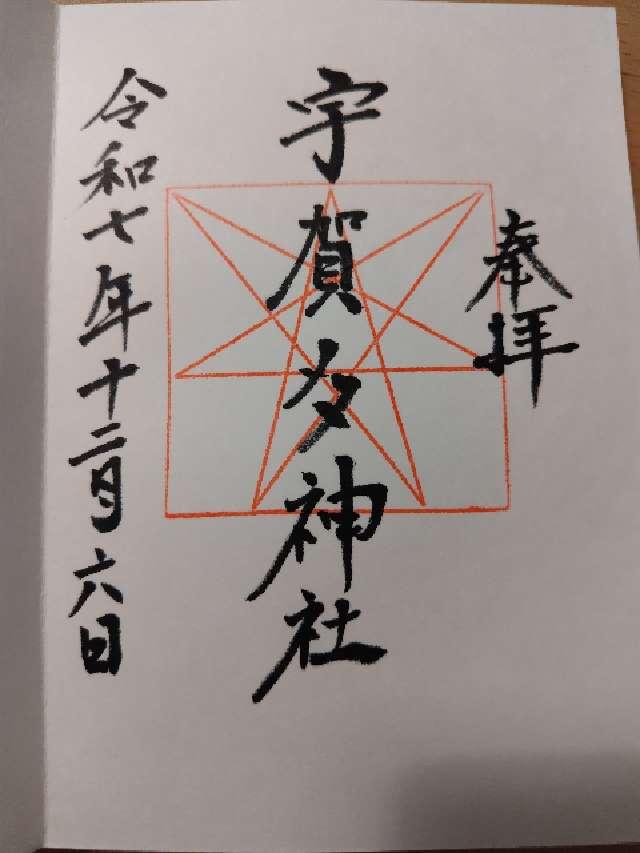 奉拝
宇賀多神社
令和七年十二月六日